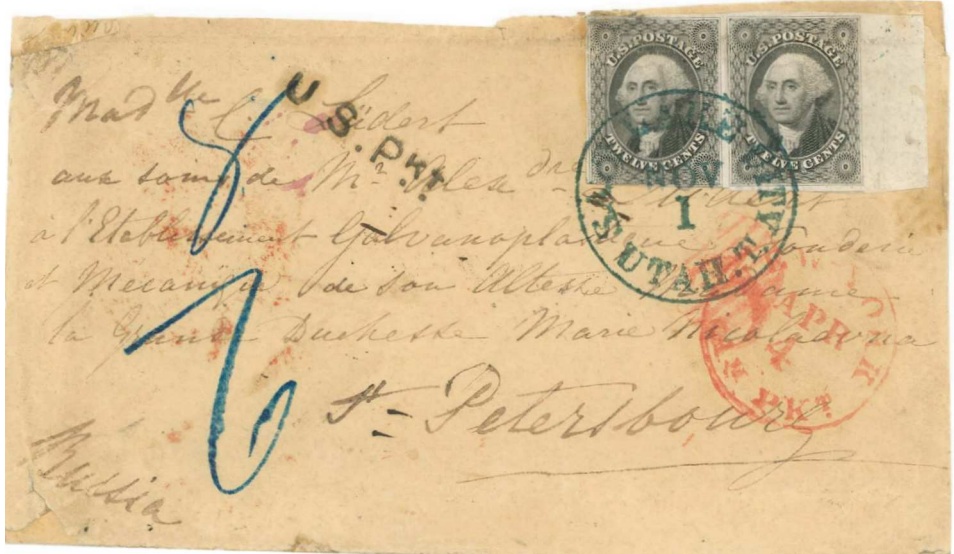 U.S. POSTAGE
TWELVE CENTS
U.S. POSTAGE
TWELVE CENTS
CITY
1
UTAH.T.
U.S.Pkt.
Madlle C. Lüdert
aux soins de Mr. Alexdre Lüdert
à l'Etablissement Galvanoplastique Fonderie
et Mecanique de son Altesse Madame
la Grande Duchesse Marie Nicolaevna
St-Petersbourg
Russia
APR
PKT.